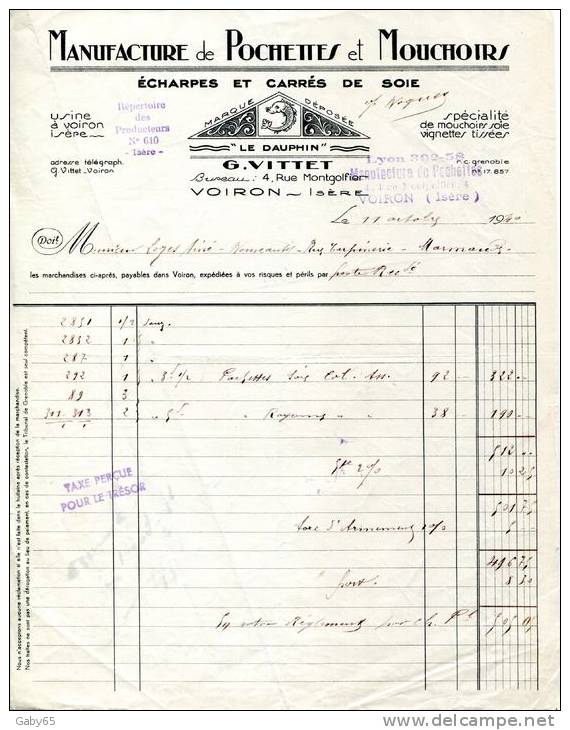 MANUFACTURE de POCHETTES et MOUCHOIRS
ÉCHARPES ET CARRÉS DE SOIE
usine
à voiron
isère
adresse télégraph.
G. Vittet _ Voiron
Répertoire
des
Producteurs
N° 610
- Isère -
MARQUE DÉPOSÉE
"LE DAUPHIN"
G. VITTET
Bureau : 4, Rue Montgolfier
VOIRON _ ISÈRE
spécialité
de mouchoirs soie
vignettes tissées
r.c. grenoble
17.857
Lyon 392-58
Manufacture de Pochettes
VOIRON (Isère)
Le 11 octobre 1940
Doit Monsieur aîné - Nouveautés - Rue - Marmande
les marchandises ci-après, payables dans Voiron, expédiées à vos risques et périls par poste
2851 1/2 douz.
2852 1 "
287 1 "
292 1 " 3 1/2 Pochettes Soie Col. Ass. 92 - 322 -
89 3
2 " 5 Rayonne " " 38 - 190 -
512 -
2% 10 25
501 75
taxe d'Armement
496 75
port. 8 30
votre Règlement par ch. Pl 505 05
TAXE PERÇUE
POUR LE TRÉSOR
Nous n'acceptons aucune réclamation si elle n'est faite dans la huitaine après réception de la marchandise.
Nos traites ne sont pas une dérogation au lieu de paiement, en cas de contestation, le Tribunal de Grenoble est seul compétent.
Gaby65
delcampe.net